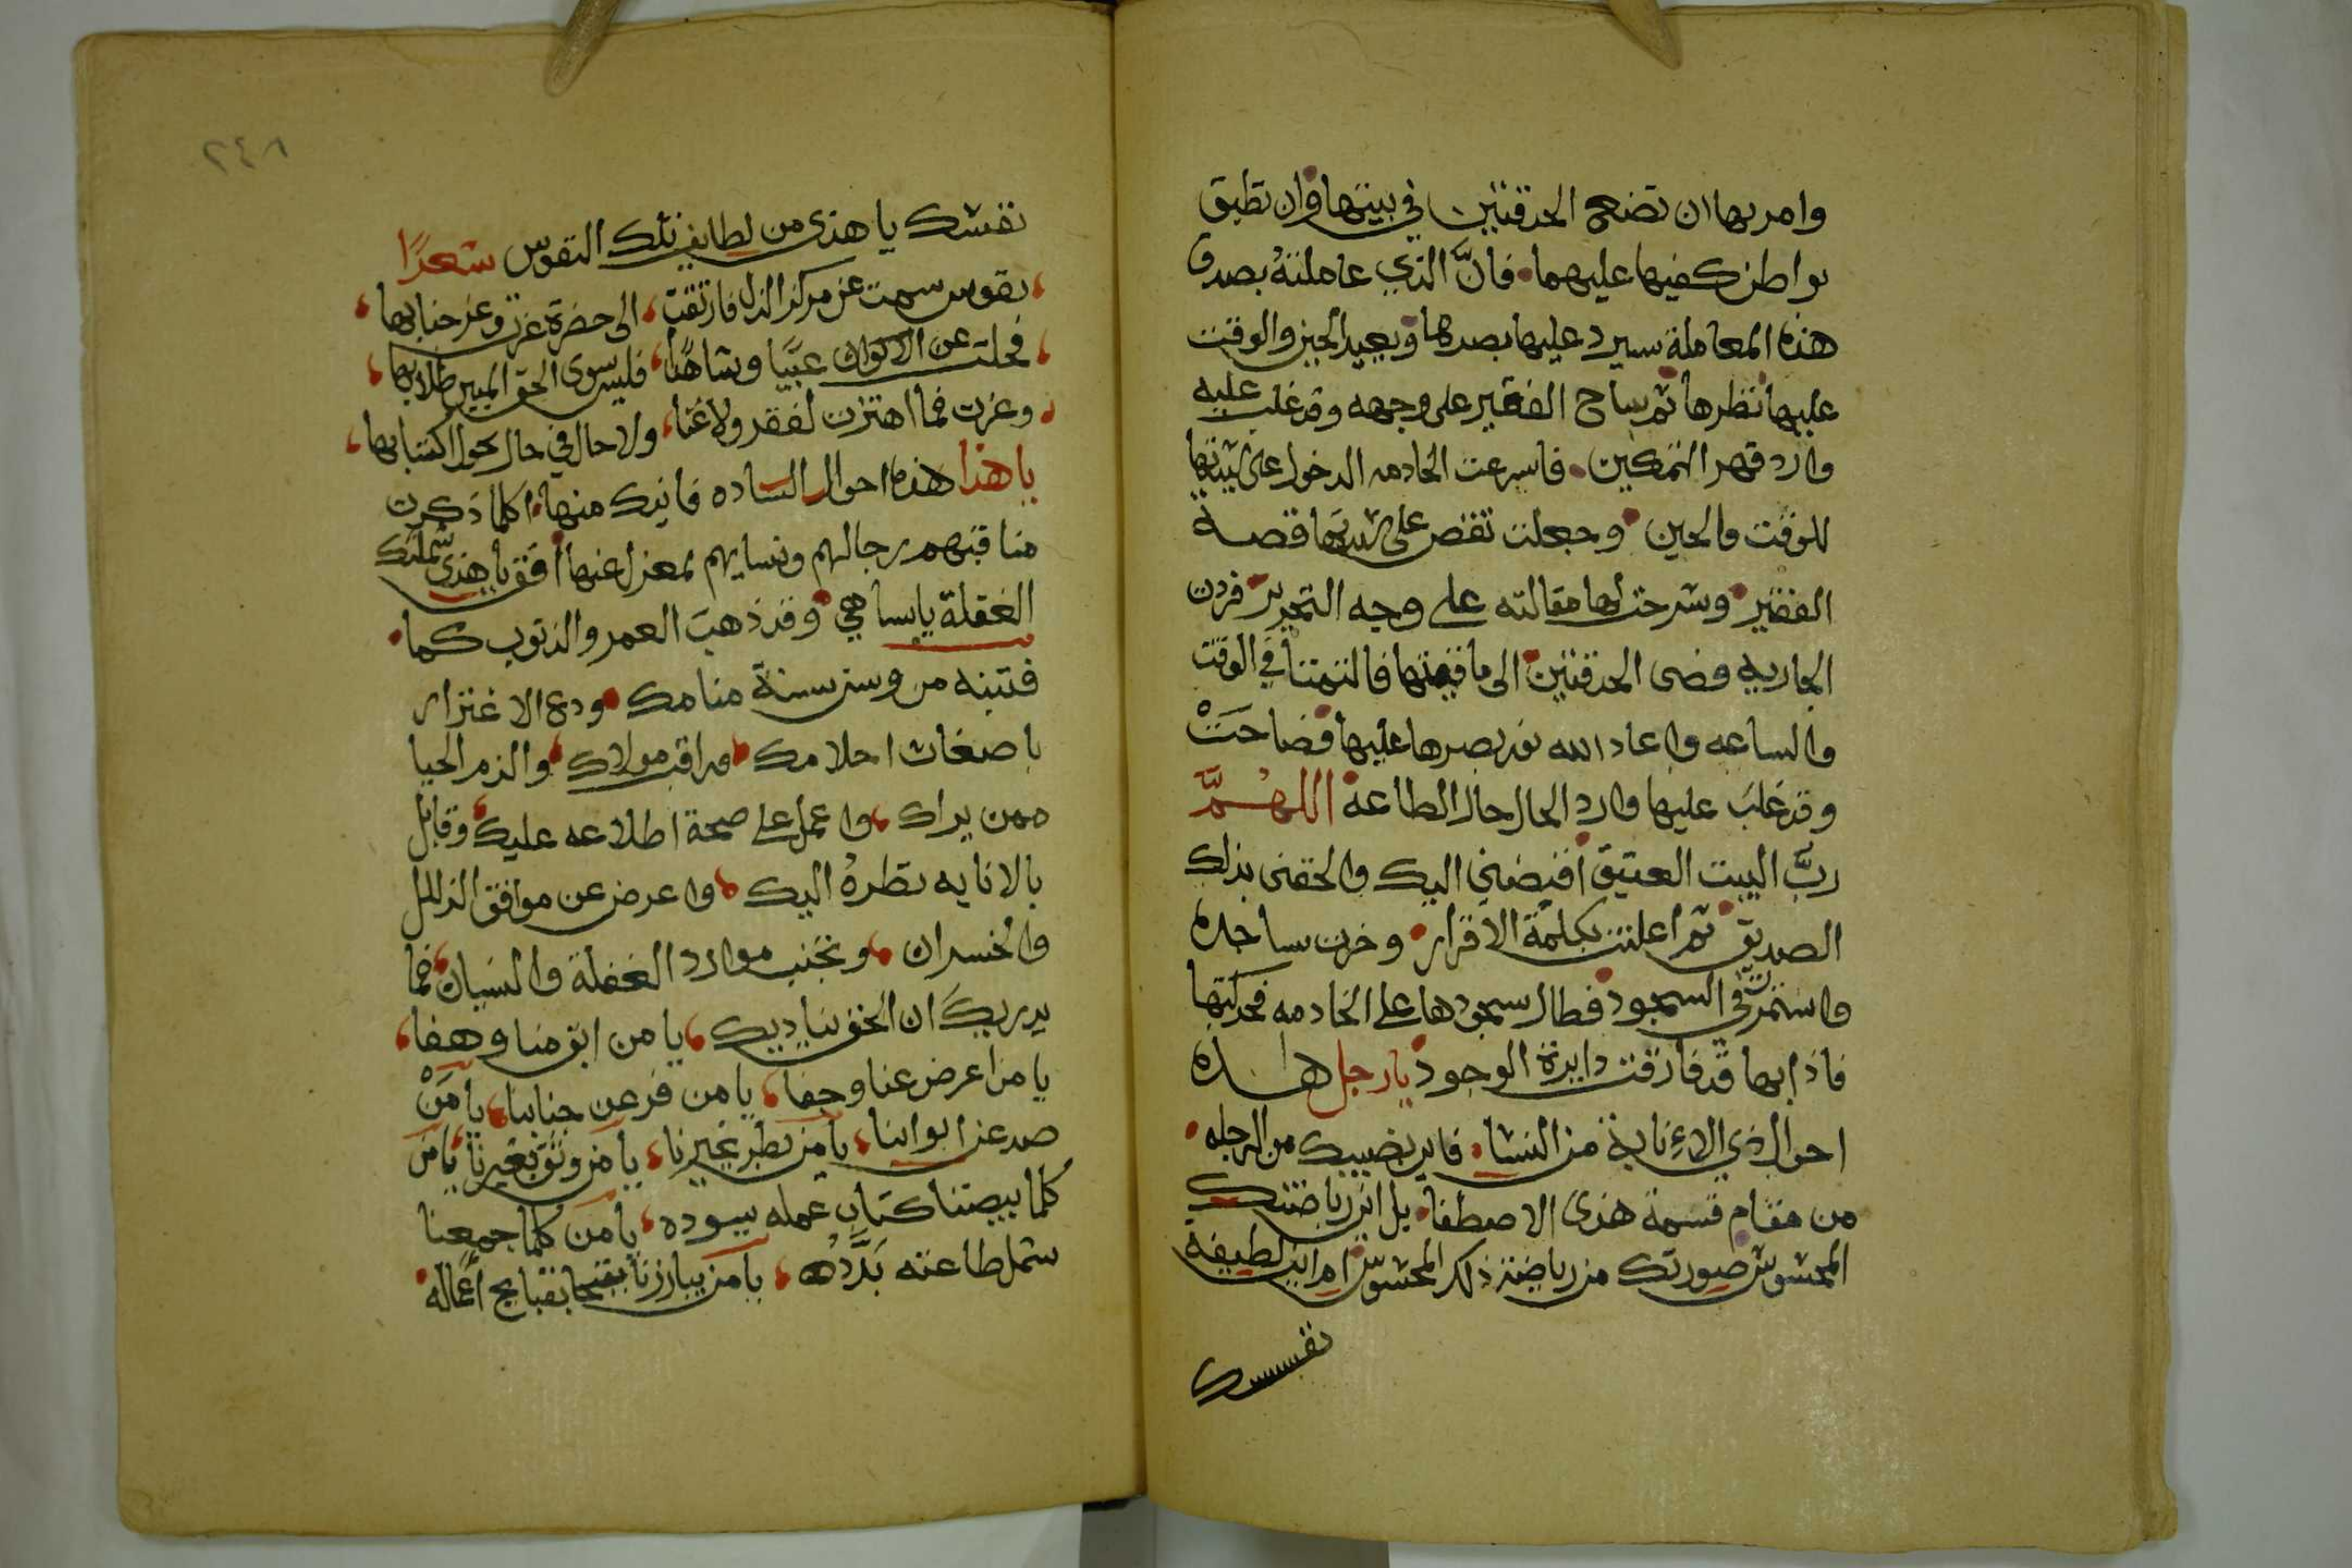 وامرها ان تضع الحدقتين في بيتها وان تطبق
بواطن كفيها عليهما فانَّ الذي عاملته بصدق
هذه المعاملة سيرد عليها بصدها ويعيد الحين والوقت
عليها نظرها ثم ساح الفقير على وجهه وقد غلب عليه
وارد قهر التمكين فاسرعت الخادمه الدخول على سيدتها
للوقت والحين وجعلت تقص على سيدتها قصة
الفقير وشرحت لها مقالته على وجه التحرير فردت
الجاريه فضى الحدقتين الى ما قيمتها فالتمتا في الوقت
والساعه واعاد الله نور بصرها عليها فصاحت
وقد غلب عليها وارد الحال حال الطاعة اللهمَّ
ربَّ البيت العتيق اقبضني اليك والحقنى بذلك
الصديق ثم اعلنت بكلمة الاقرار وخرت ساجده
واستمرت في السجود فطال سجودها على الخادمه فحركتها
فاذا بها قد فارقت دايرة الوجود يا رجل هذه
احوال ذي الاءنابة من النسا فاين نصيبك من الرجله
من مقام قسمة هذى الاصطفا بل اين رياضتك
المحشوش صورتك من رياضة ذلك المحشوش ام اين لطيفة
نفسك
٢٤٨
نفسك يا هذى من لطايف تلك النفوس شعرًا
نفوس سمت عن مركز الذل فارتقت الى حضرة عزت وعز جنابها
فخلت عن الاكوان غيبًا وشاهدًا فليس سوى الحق المبين طلابها
وعزت فما اهتزت لفقر ولا غنا ولا حال في حال يحول اكتسابها
يا هذا هذه احوال الساده فاينك منها اكلما ذكرت
مناقبهم رجالهم ونسايهم بمعزل عنها افق يا هذى شملتك
الغفلة يا ساهي وقد ذهب العمر والذنوب كما
فتنبه من وسن سنة منامك ودع الاغترار
باضغاث احلامك وراقب مولاك والزم الحيا
ممن يراك واعمل على صحة اطلاعه عليك وقابل
بالانابه نظره اليك واعرض عن موافق الزلل
والخسران وتجنب موارد الغفلة والنسيان فما
يدريك ان الحق يناديك يا من ابق منا وهفا
يا من اعرض عنا وجفا يا من فر عن جنابنا يا منْ
صد عن ابوابنا يا من نظر لغيرنا يا من وثق بغيرنا يا من
كلما بيضنا كتاب عمله يسوده يا من كلما جمعنا
شمل طاعته بدَّده يا من يبارزنا بقبايح اعماله